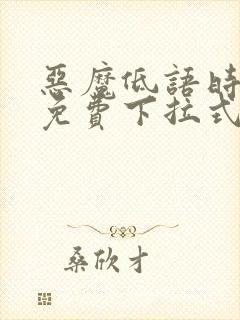 惡魔低語時
免費下拉式
桑欣才